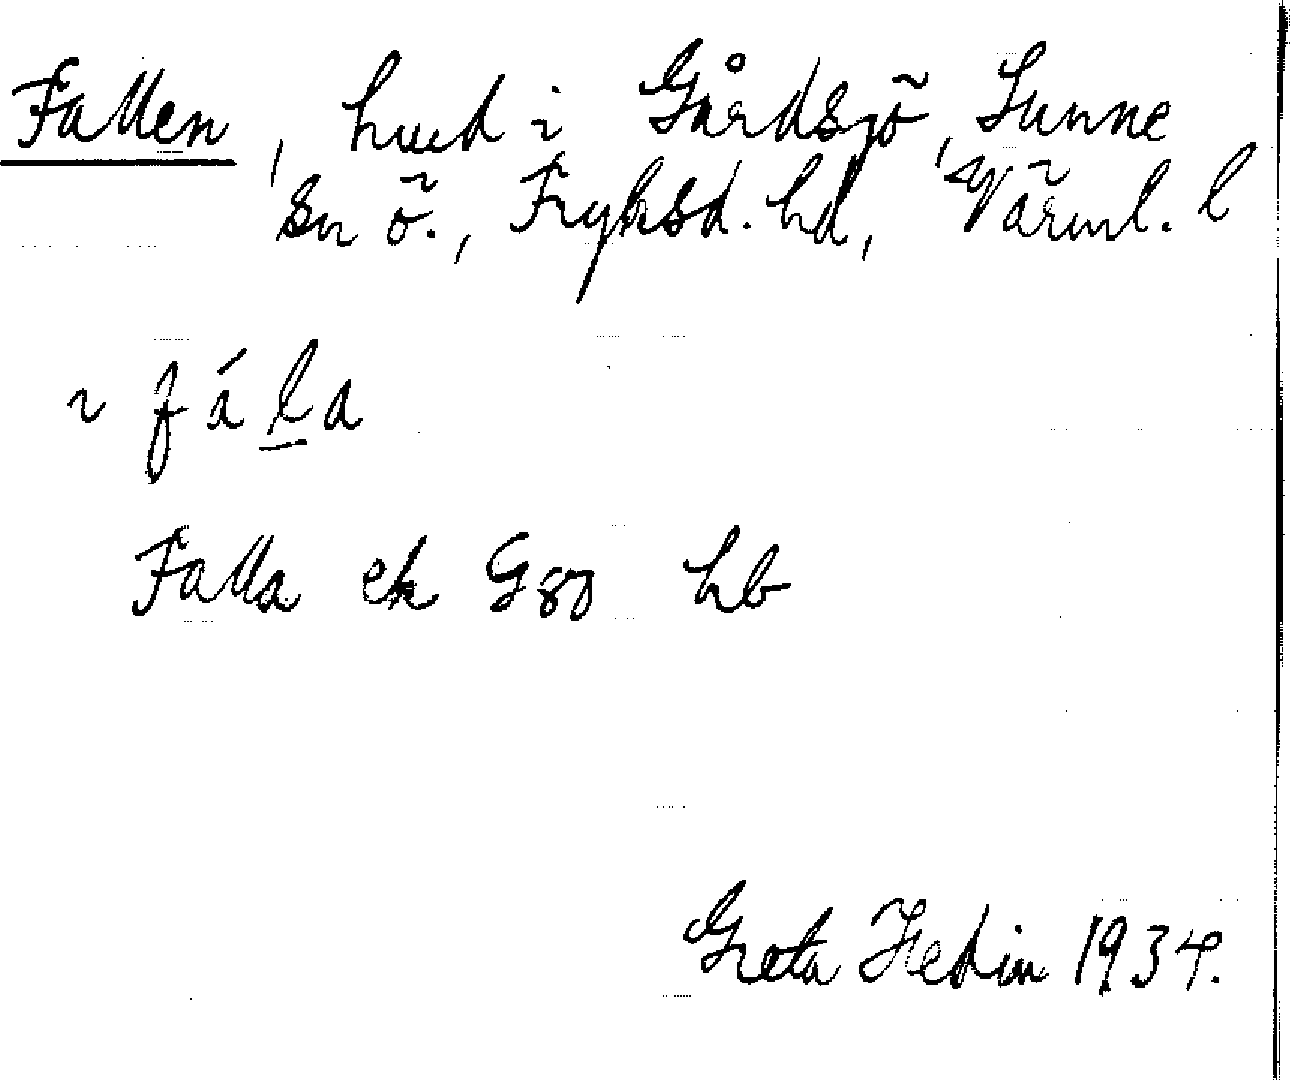 Fallen, hved i Gårdsjö, Sunne
sn ö., Fryksd. hd, Värml. l
i fála
Falla ek G 80 hb
Greta Hedin 1934.